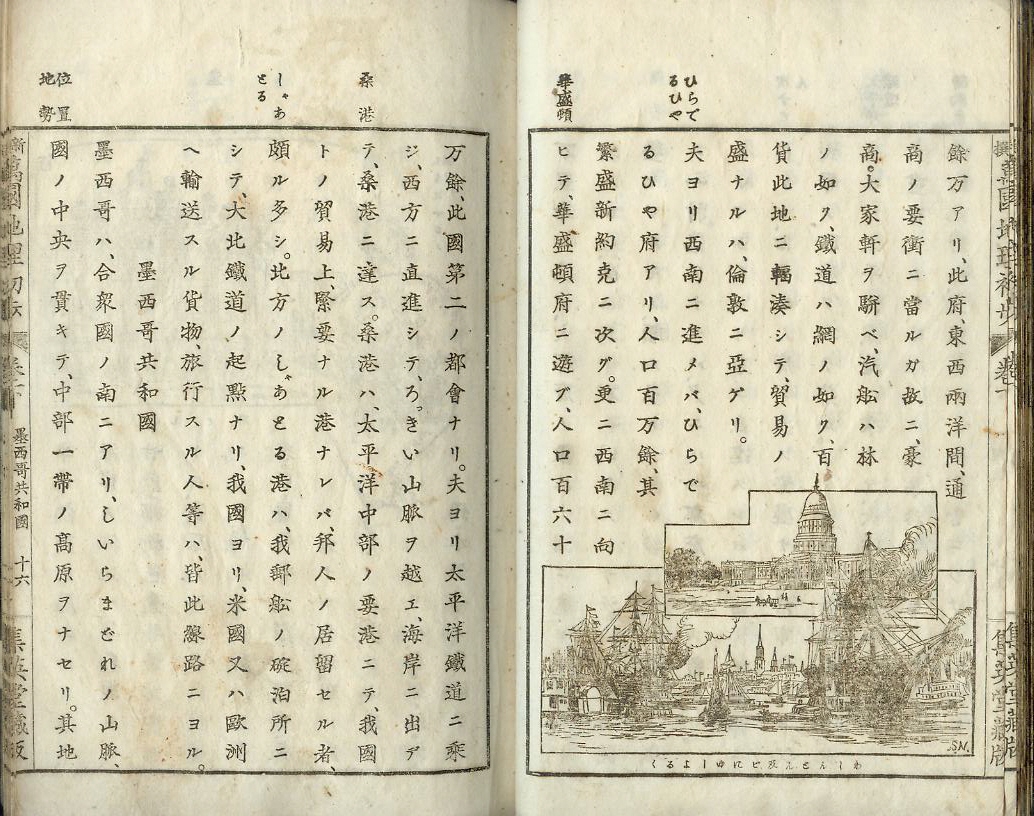 ひらで
るひや
華盛頓
餘万アリ、此府、東西兩洋間、通
高ノ要衝ニ當ルガ故ニ、豪
商。大家軒ヲ駢ベ、汽舩ハ林
ノ如ク、鐵道ハ網ノ如ク、百
貨此地ニ輻湊シテ、貿易ノ
盛ナルハ、倫敦ニ亞ゲリ。
夫ヨリ西南ニ進メバ、ひらで
るひや府アリ、人口百万餘、其
繁盛新約克ニ次グ。更ニ西南ニ向
ヒテ、華盛頓府ニ遊ブ、人口百六十
わしんとん及ビにゆーよるく
SN.
集英堂藏版
桑港
しゃあ
とる
位置
地勢
万餘、此國第二ノ都會ナリ。夫ヨリ太平洋鐵道ニ乘
ジ、西方ニ直進シテ、ろっきい山脈ヲ越エ、海岸ニ出デ
テ、桑港ニ達ス。桑港ハ、太平洋中部ノ要港ニテ、我國
トノ貿易上、緊要ナル港ナレバ、邦人ノ居留セル者、
頗ル多シ。此方ノしゃあとる港ハ、我郵舩ノ碇泊所ニ
シテ、大北鐵道ノ起點ナリ、我國ヨリ、米國又ハ歐洲
ヘ輸送スル貨物、旅行スル人等ハ、皆此線路ニヨル。
墨西哥共和國
墨西哥ハ、合衆國ノ南ニアリ、しいらまどれノ山脈、
國ノ中央ヲ貫キテ、中部一帶ノ高原ヲナセリ。其地
墨西哥共和國 十六
集英堂藏版